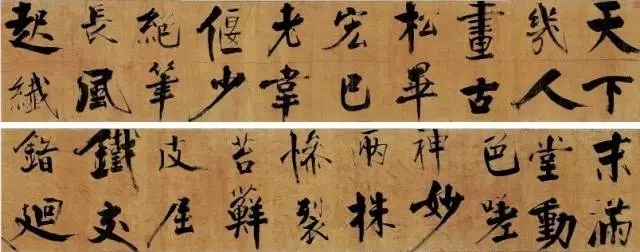 天下
幾人
畫古
松畢
宏已
老韋
偃少
絕筆
長風
起纖
末滿
堂動
色嗟
神妙
兩株
慘裂
苔蘚
皮屈
鐵交
錯迴